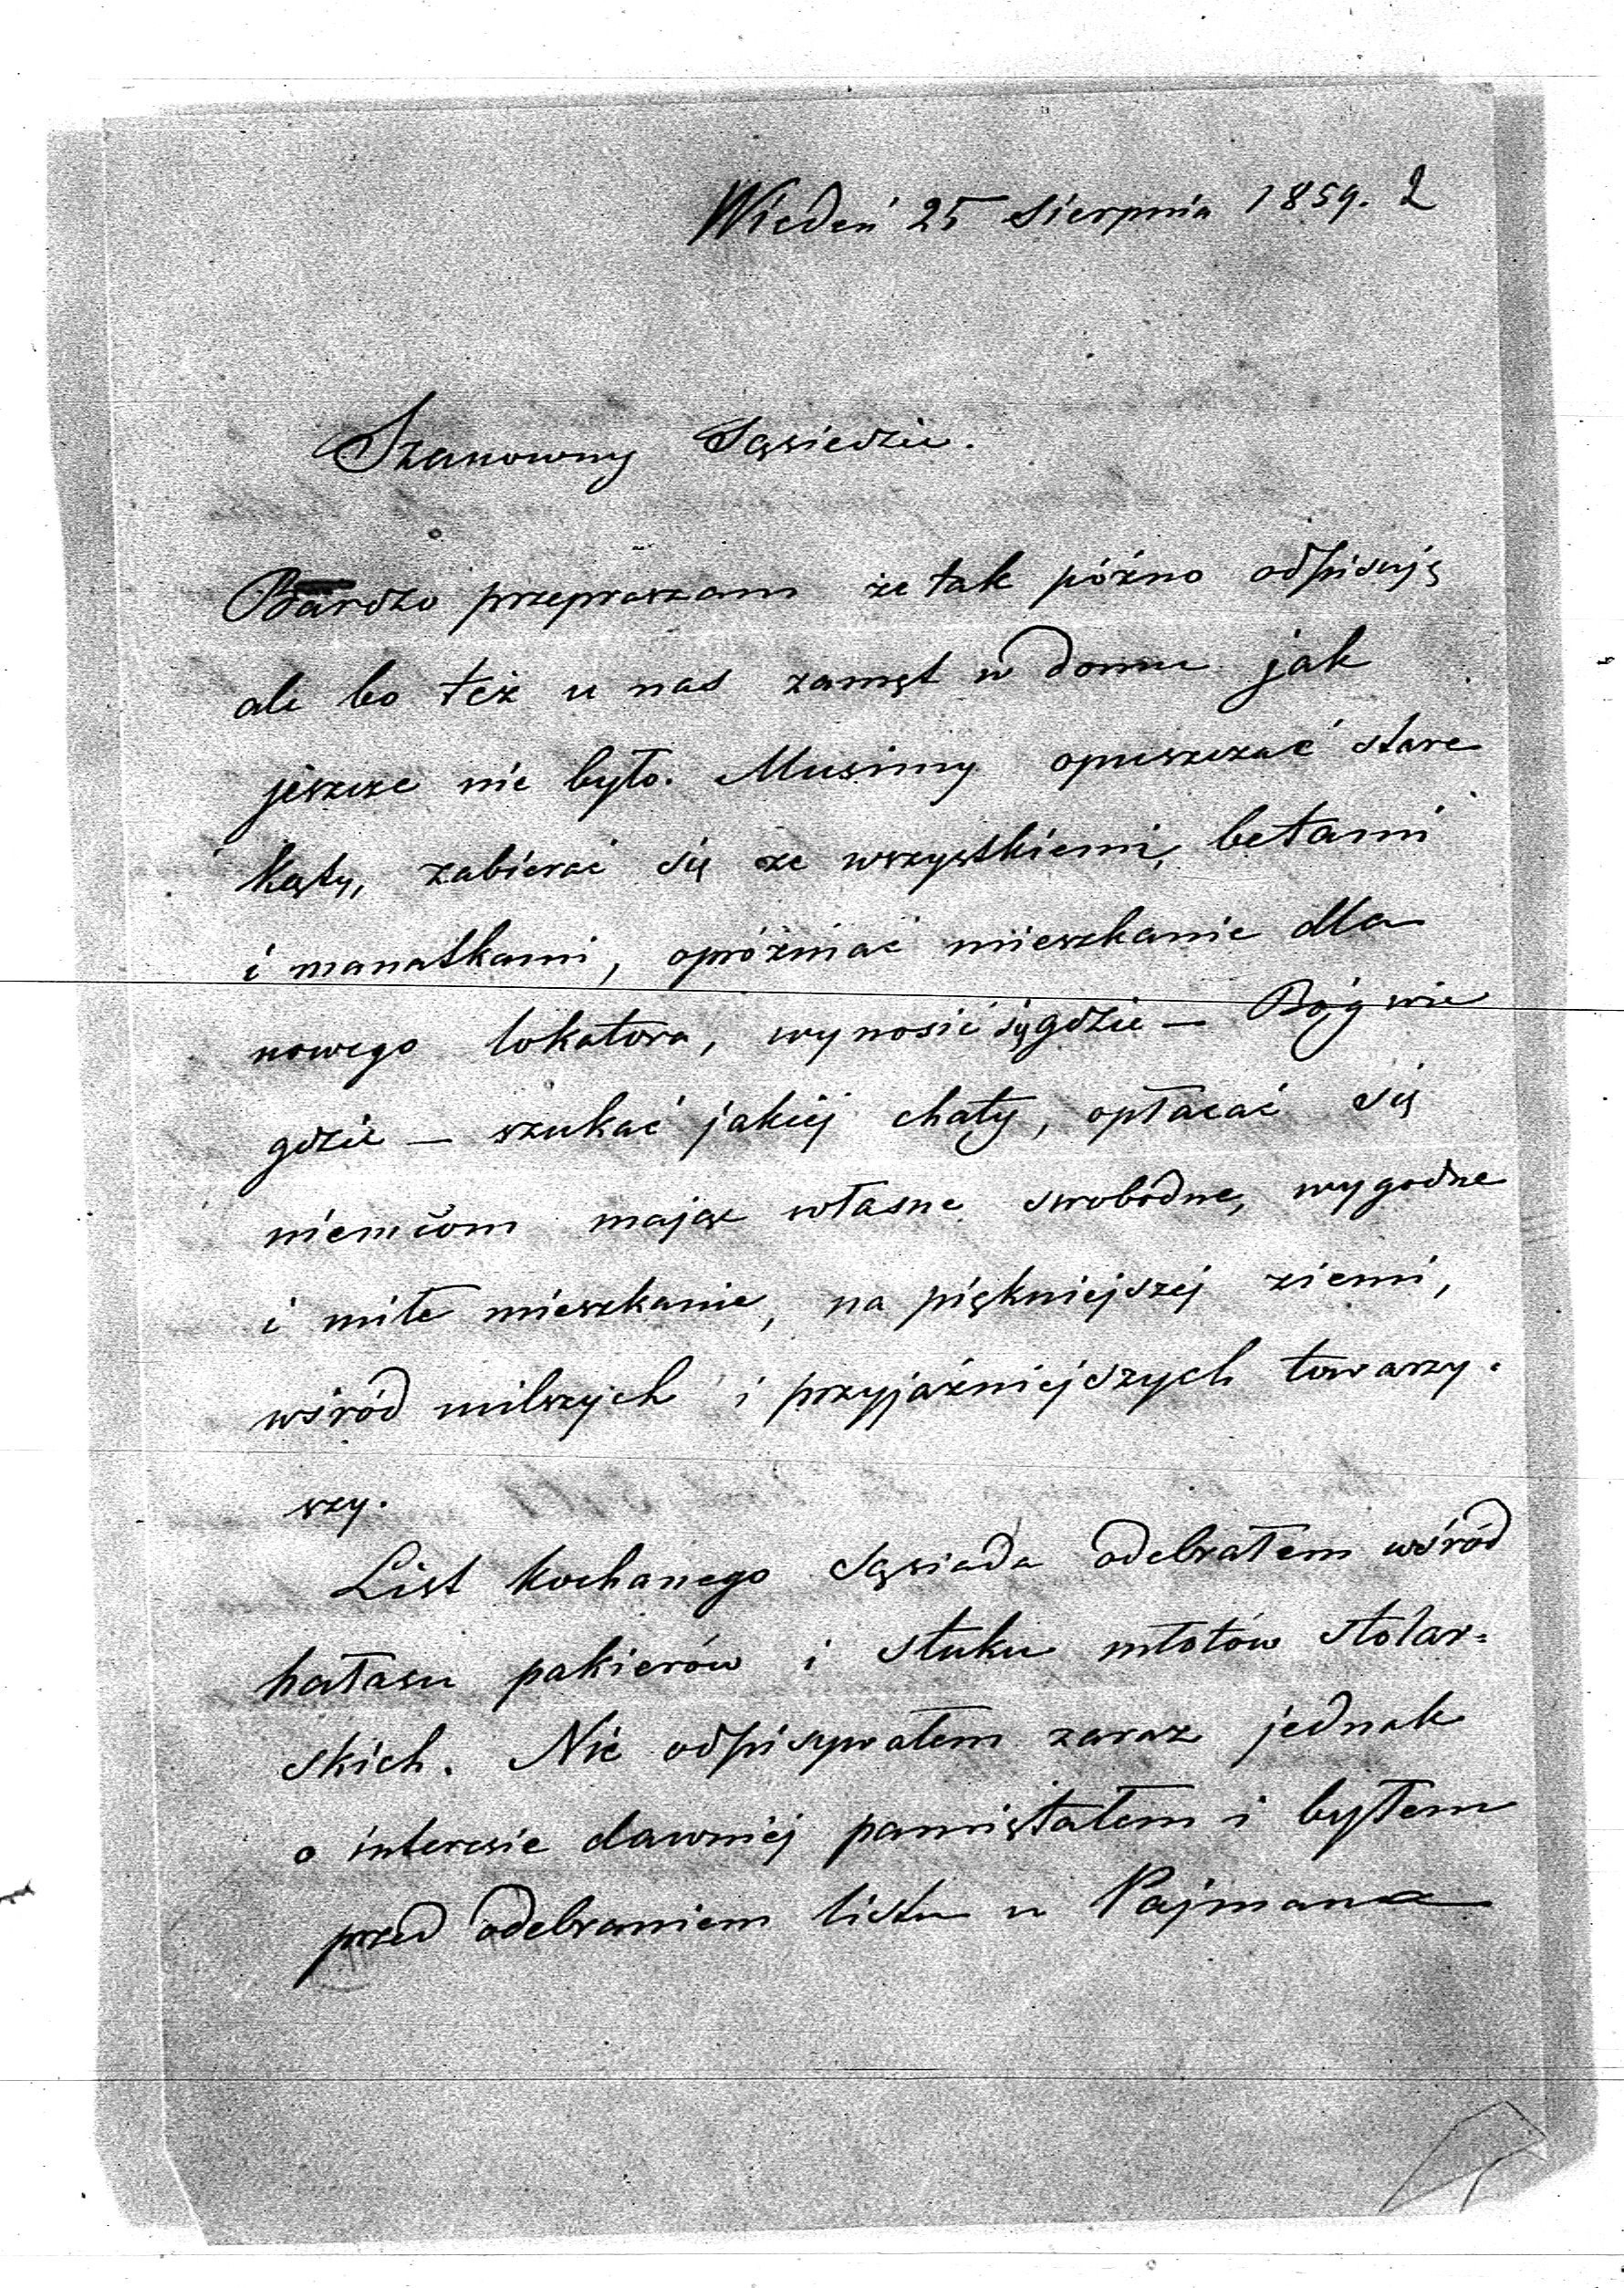 Wiedeń 25 Sierpnia 1859. 2
Szanowny Sąsiedzie.
Bardzo przepraszam że tak późno odpisuję
ale bo też u nas zamęt w domu jak
jeszcze nie było. Musimy opuszczać stare
kąty, zabierać się ze wszystkiemi, betami
i manatkami, opróżniać mieszkanie dla
nowego lokatora, wynosić się gdzie — Bóg wie
gdzie — szukać jakiej chaty, opłacać się
niemcom mając własne swobodne, wygodne
i miłe mieszkanie, na piękniejszej ziemi,
wśród milszych i przyjaźniejszych towarzy-
szy.
List kochanego Sąsiada odebrałem wśród
hałasu pakierów i stuku młotów stolar=
skich. Nie odpisywałem zaraz jednak
o interesie dawniej pamiętałem i byłem
przed odebraniem listu u Pajmana